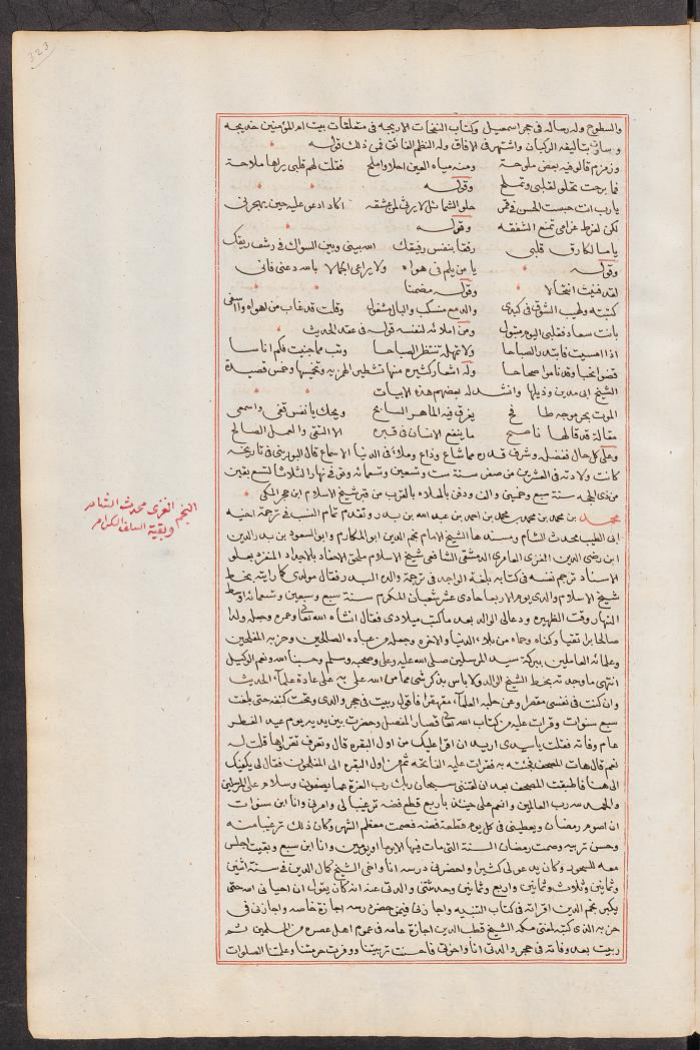 323
والسطوح وله رسالة في حجر اسمعيل وكتاب النفحات الاريجه في متعلقات بيت ام المؤمنين خديجه
وسارت بتاليفه الركبان واشتهر في الافاق وله النظم الفائق فمن ذلك قوله
وزمزم قالو فيه بعض ملوحة ومنه مياه العين احلا واملح فقلت لهم قلبي يراها ملاحة
فما برحت تحلو لقلبي وتملح وقوله
يارب انت حبست الحسن في قمر حلو الشمائل لا يرثي لمن عشقه اكاد ادعو عليه حين يهجرني
لكن لفرط غرامي تمنع الشفقه وقوله
يا سالكا رق قلبي رفقا بنفس رفيقك الله بيني وبين السواك في رشف ريقك
وقوله يا من يلم في هواه ولا يراعي الجمالا بالله دعني فاني
لقد فنيت انتحالا وقوله مضمنا
كتبته ولهيب الشوق في كبدي والدمع منسكب والبال مشغول وقلت قد غاب من اهواه وا اسفي
بانت سعاد فقلبي اليوم متبول ومن املائه لنفسه قوله في عقد الحديث
اذا امسيت فابتدر الصباحا ولا تمهله تنتظر الصباحا وتب مما جنيت فكم اناسا
قضوا نحبا وقد ناموا صحاحا وله اشعار كثيره منها تشطير الهمزيه وتخميسها وخمس قصيدة
الشيخ ابي مدين وذيلها وانشد له بعضهم هذه الابيات
الموت بحر موجه طافح يغرق فيه الماهر السابح ويحك يا نفس قفي واسمعي
مقالة قد قالها ناصح ما ينفع الانسان في قبره الا التقى والعمل الصالح
وعلى كل حال ففضله وشرف قدره مما شاع وذاع وملا في الدنيا الاسماع قال البوريني في تاريخه
كانت ولادته في العشرين من صفر سنة ست وسعين وتسمائه وتوفي نهار الثلاثا لتسع بقين
من ذي الحجه سنة سبع وخمسين والف ودفن بالمعلاه بالقرب من قبر شيخ الاسلام ابن حجر المكي
محمد بن محمد بن محمد بن محمد بن احمد بن عبد الله بن بدر وتقدم تمام النسب في ترجمة اخيه
ابي الطيب محدث الشام ومسندها الشيخ الامام نجم الدين ابو المكارم وابو السعود بن بدر الدين
ابن رضي الدين الغزي العامري الدمشقي الشافعي شيخ الاسلام ملحق الاحفاد بالاجداد المنفرد بعلو
الاسناد ترجم نفسه في كتابه بلغة الواجد في ترجمة والده البدر فقال مولدي كما رايته بخط
شيخ الاسلام والدي يوم الاربعا حادي عشر شعبان المكرم سنة سبع وسبعين وتسعمائه اوسط
النهار وقت الظهيره ودعا لي الوالد بعد ما كتب ميلادي فقال انشاه الله تعالى وعمره وجعله ولدا
صالحا برا تقيا وكفاه وحماه من بلاء الدنيا والاخره وجعله من عباده الصالحين وحزبه المفلحين
وعلمائه العاملين ببركة سيد المرسلين صلى الله عليه وعلى وصحبه وسلم وحسبنا الله ونعم الوكيل
انتهى ما وجدته بخط الشيخ الوالد ولا باس بذكر شي مما من الله علي به على عادة علماء الحديث
وان كنت في نفسي مقصرا وعن حلبة العلماء مقهقرا فاقول ربيت في حجر والدي وتحت كنفه حتى بلغت
سبع سنوات وقرات عليه من كتاب الله تعالى قصار المفصل وحضرت بين يديه يوم عيد الفطر
عام وفاته فقلت يا سيدي اريد ان اقرا عليك من اول البقره قال وتعرف تقراها قلت له
نعم قال هات المصحف فجئته به فقرات عليه الفاتحه ثم من اول البقره الى المفلحون فقال لي يكفيك
الى هنا فاطبقت المصحف بعد ان لقنني سبحان ربك رب العزة عما يصفون وسلام على المرسلين
والحمد لله رب العالمين وانعم علي حينئذ باربع قطع فضه ترغيبا لي وامرني وانا ابن سنوات
ان اصوم رمضان ويعطيني في كل يوم قطعة فضه فصمت معظم الشهر وكان ذلك ترغيبا منه
وحسن تربيه وصمت رمضان السنة التي مات فيها الا يوما او يومين وانا ابن سبع وبقيت اجلس
معه للسحور وكان يدعو لي كثيرا واحضرني درسه انا واخي الشيخ كمال الدين في سنة اثنين
وثمانين وثلاث وثمانين واربع وثمانين وحدثتني والدتي عنه انه كان يقول ان احياني الله حتى
يكبر نجم الدين اقراته في كتاب التنبيه واجازني فيمن حضر درسه اجازة خاصه واجازني في
حزبه الذي كتبه لمفتي مكه الشيخ قطب الدين اجازة عامه في عموم اهل عصره من المسلمين ثم
ربيت بعد وفاته في حجر والدتي انا واخوتي فاحسنت تربيتنا ووفرت حرمتنا وعلمتنا الصلوات
النجم الغزي محدث الشام
وبقية السلف الكرام